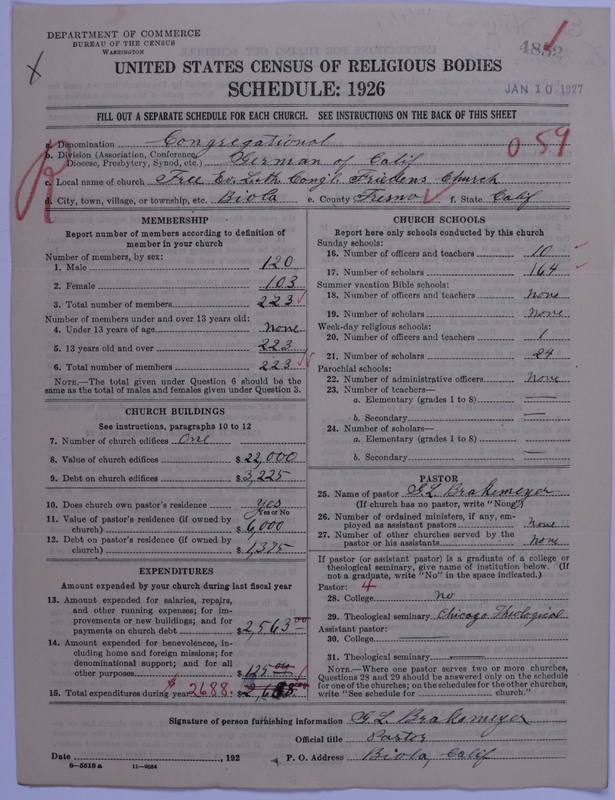 DEPARTMENT OF COMMERCE
BUREAU OF THE CENSUS
WASHINGTON
UNITED STATES CENSUS OF RELIGIOUS BODIES
SCHEDULE: 1926
JAN 10 1927
FILL OUT A SEPARATE SCHEDULE FOR EACH CHURCH. SEE INSTRUCTIONS ON THE BACK OF THIS SHEET
a. Denomination Congregational
b. Division (Association, Conference, Diocese, Presbytery, Synod, etc.) German of Calif
059
c. Local name of church Free Ev. Luth. Congl. Friedens Church
d. City, town, village, or township, etc. Biola e. County Fresno f. State Calif
MEMBERSHIP
Report number of members according to definition of
member in your church
Number of members, by sex:
1. Male 120
2. Female 103
3. Total number of members 223
Number of members under and over 13 years old:
4. Under 13 years of age None
5. 13 years old and over 223
6. Total number of members 223
NOTE.—The total given under Question 6 should be the
same as the total of males and females given under Question 3.
CHURCH BUILDINGS
See instructions, paragraphs 10 to 12
7. Number of church edifices One
8. Value of church edifices $22,000
9. Debt on church edifices $3,225
10. Does church own pastor's residence yes
Yes or No
11. Value of pastor's residence (if owned by
church) $6,000
12. Debt on pastor's residence (if owned by
church) $1,375
EXPENDITURES
Amount expended by your church during last fiscal year
13. Amount expended for salaries, repairs,
and other running expenses; for im-
provements or new buildings; and for
payments on church debt $2,563.00
14. Amount expended for benevolences, in-
cluding home and foreign missions; for
denominational support; and for all
other purposes $125.00
15. Total expenditures during year $2688.
CHURCH SCHOOLS
Report here only schools conducted by this church
Sunday schools:
16. Number of officers and teachers 10
17. Number of scholars 164
Summer vacation Bible schools:
18. Number of officers and teachers None
19. Number of scholars None
Week-day religious schools:
20. Number of officers and teachers 1
21. Number of scholars 24
Parochial schools:
22. Number of administrative officers None
23. Number of teachers—
a. Elementary (grades 1 to 8) —
b. Secondary —
24. Number of scholars—
a. Elementary (grades 1 to 8) —
b. Secondary —
PASTOR
25. Name of pastor G. L. Brakemeyer
(If church has no pastor, write "None")
26. Number of ordained ministers, if any, em-
ployed as assistant pastors None
27. Number of other churches served by the
pastor or his assistants None
If pastor (or assistant pastor) is a graduate of a college or
theological seminary, give name of institution below. (If
not a graduate, write "No" in the space indicated.)
Pastor: 4
28. College No
29. Theological seminary Chicago Theological
Assistant pastor:
30. College —
31. Theological seminary —
NOTE.—Where one pastor serves two or more churches,
Questions 28 and 29 should be answered only on the schedule
for one of the churches; on the schedules for the other churches,
write "See schedule for church."
Signature of person furnishing information G. L. Brakemeyer
Official title Pastor
Date , 192 P. O. Address Biola, Calif
8-5518 a 11-9684